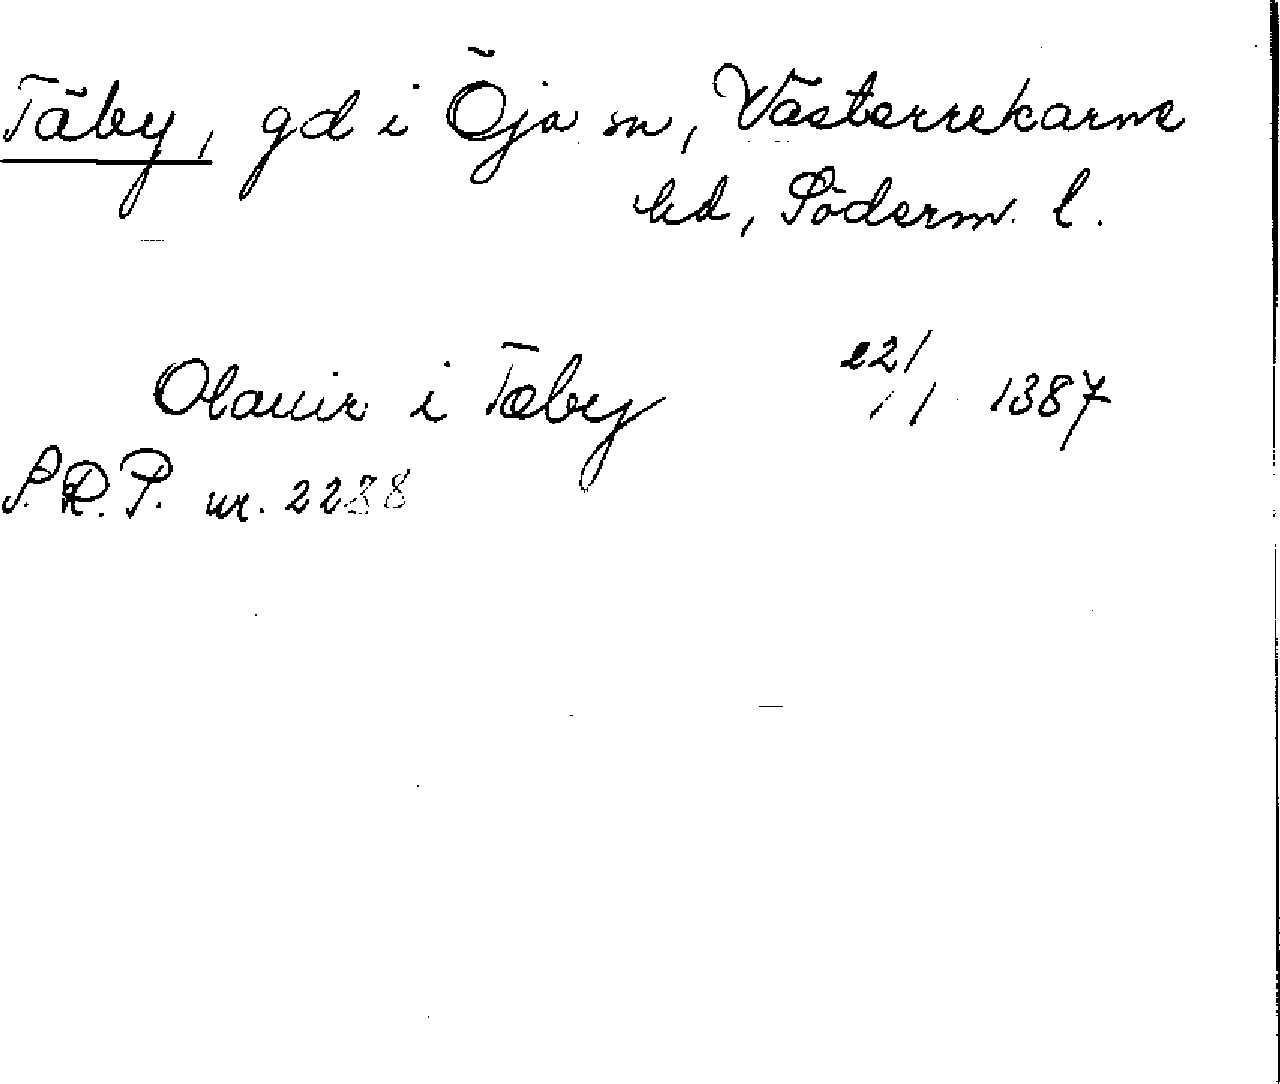 Täby, gd i Öja sn, Västerrekarne
hd, Söderm. l.
Olauir i Tæby 22/1 1387
S.R.P. nr. 2288